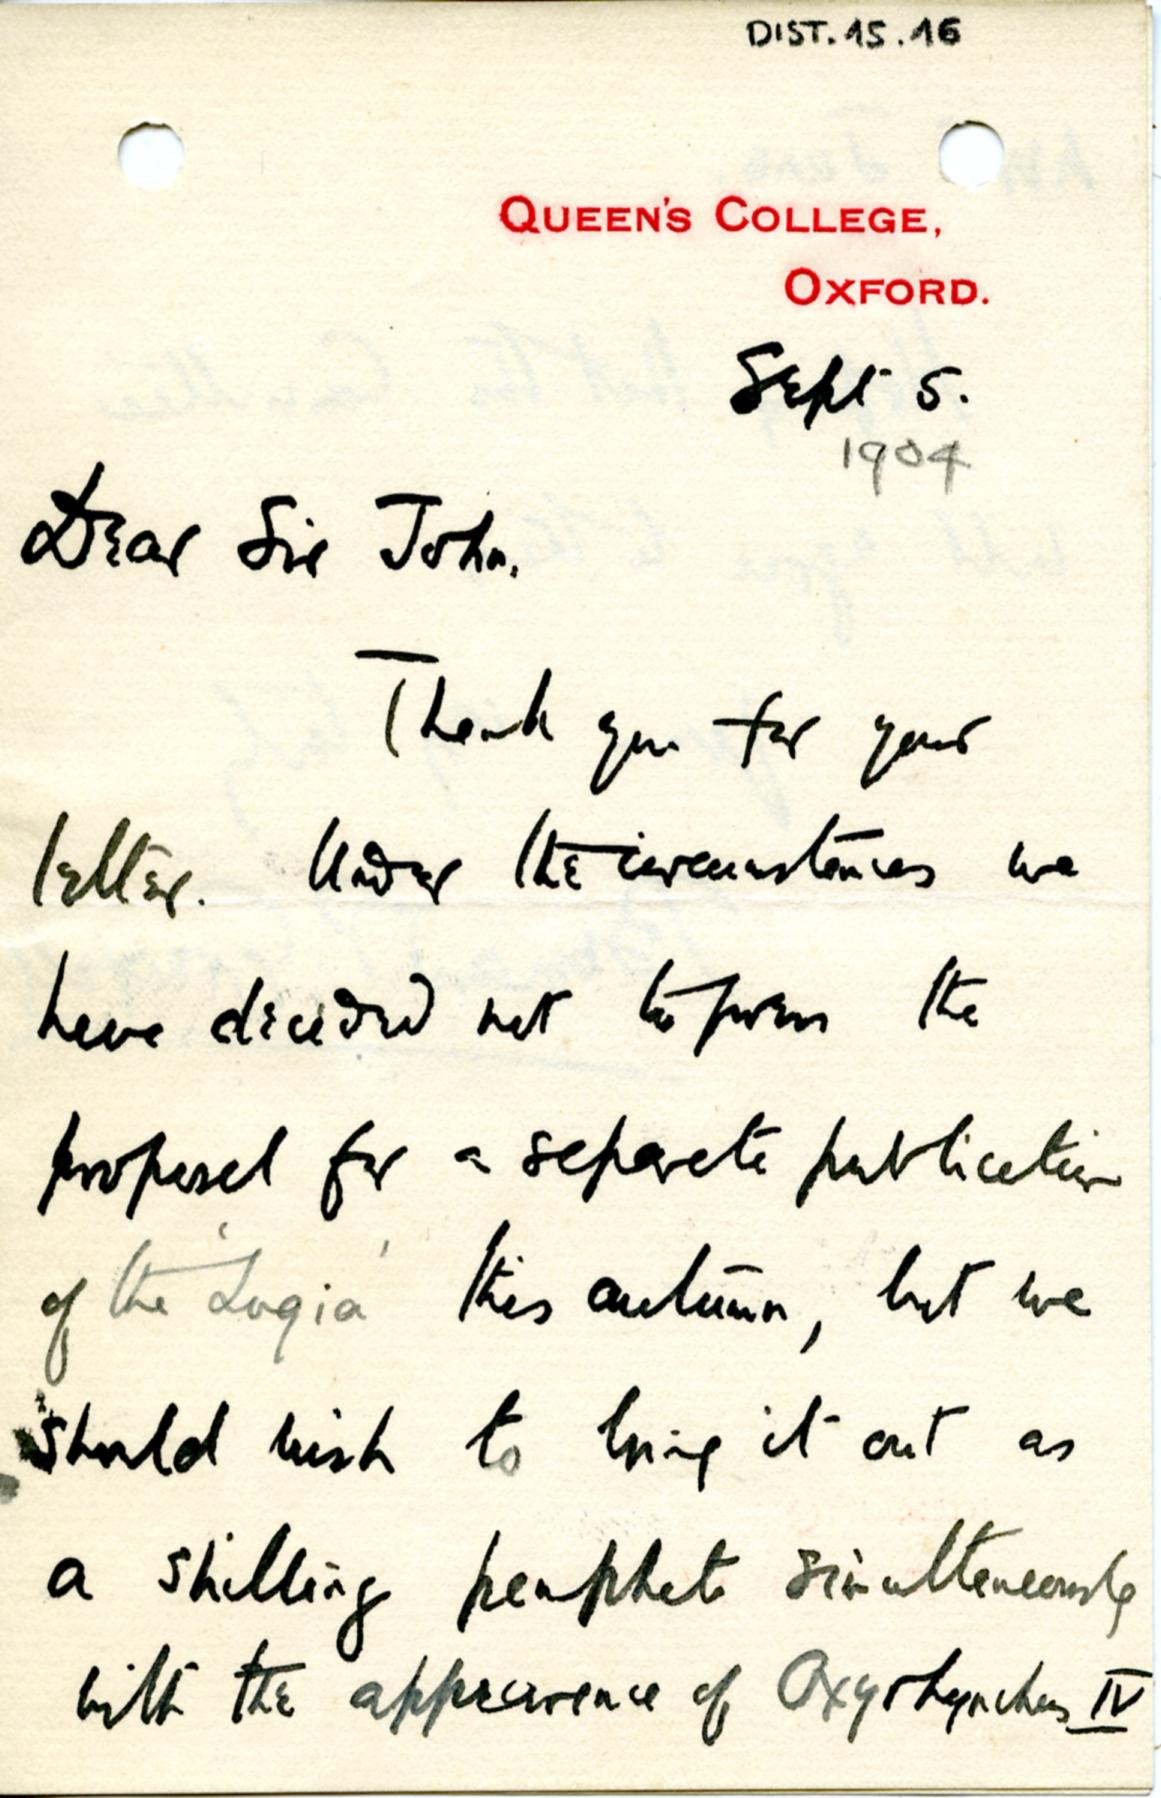 DIST.15.16
QUEEN'S COLLEGE,
OXFORD.
Sept 5.
1904
Dear Sir John,
Thank you for your
letter. Under the circumstances we
have decided not to press the
proposal for a separate publication
of the 'Logia' this autumn, but we
should wish to bring it out as
a shilling pamphlet simultaneously
with the appearance of Oxyrhynchus IV